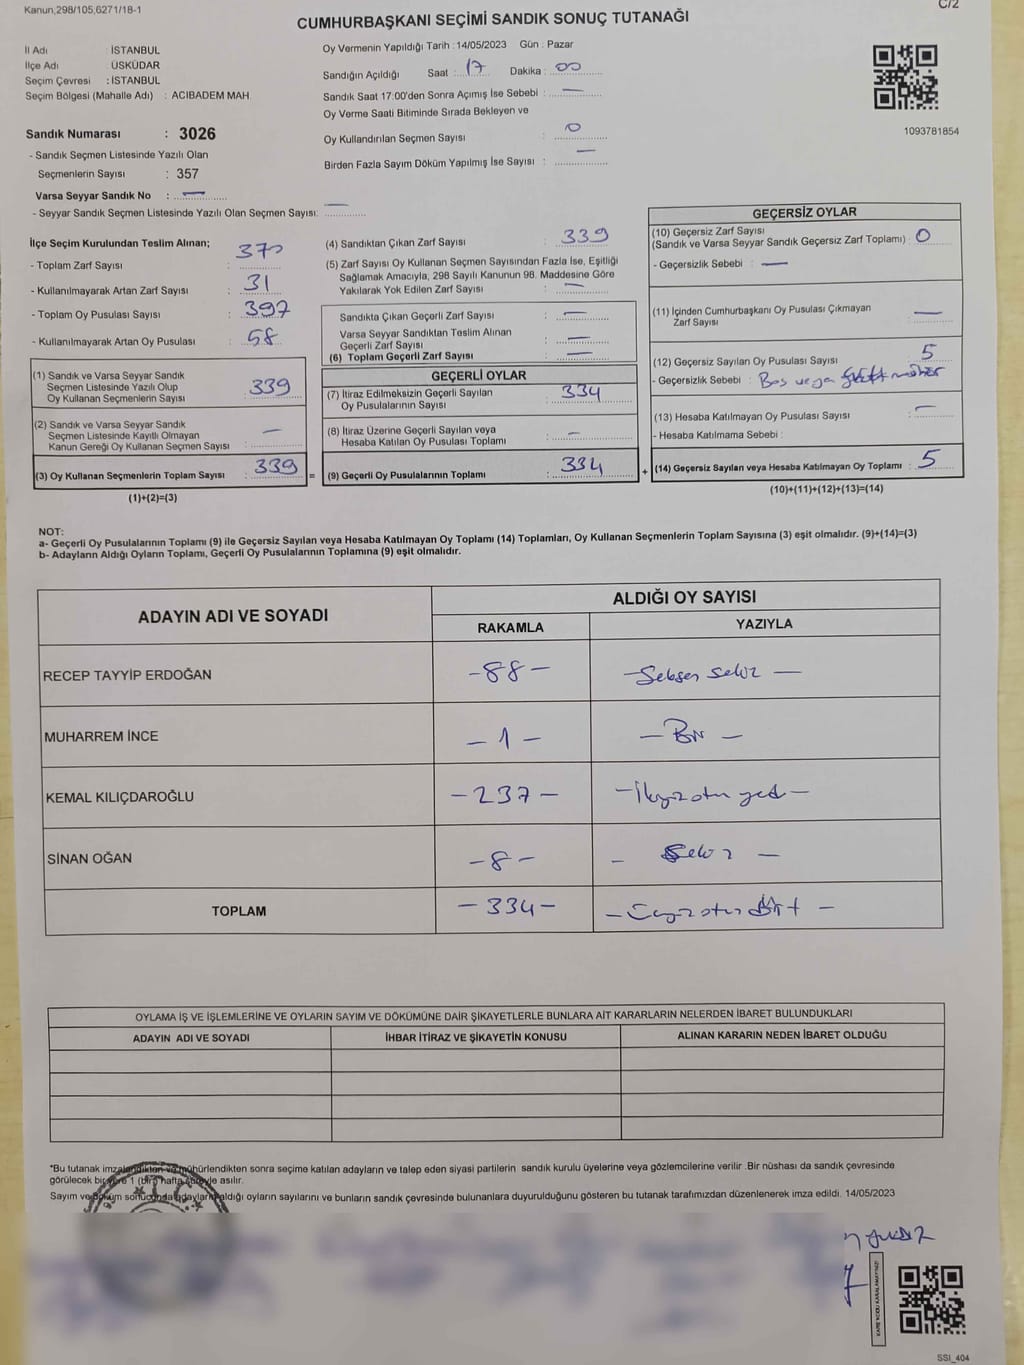 Kanun;298/105,6271/18-1
C/2
CUMHURBAŞKANI SEÇİMİ SANDIK SONUÇ TUTANAĞI
İl Adı : İSTANBUL
İlçe Adı : ÜSKÜDAR
Seçim Çevresi : İSTANBUL
Seçim Bölgesi (Mahalle Adı) : ACIBADEM MAH.
Sandık Numarası : 3026
- Sandık Seçmen Listesinde Yazılı Olan
Seçmenlerin Sayısı : 357
Varsa Seyyar Sandık No : —
- Seyyar Sandık Seçmen Listesinde Yazılı Olan Seçmen Sayısı: —
Oy Vermenin Yapıldığı Tarih : 14/05/2023 Gün : Pazar
Sandığın Açıldığı Saat : 17 Dakika : 00
Sandık Saat 17:00'den Sonra Açımış İse Sebebi : —
Oy Verme Saati Bitiminde Sırada Bekleyen ve
Oy Kullandırılan Seçmen Sayısı : 0
Birden Fazla Sayım Döküm Yapılmış İse Sayısı : —
1093781854
İlçe Seçim Kurulundan Teslim Alınan;
- Toplam Zarf Sayısı : 370
- Kullanılmayarak Artan Zarf Sayısı : 31
- Toplam Oy Pusulası Sayısı : 397
- Kullanılmayarak Artan Oy Pusulası : 58
(1) Sandık ve Varsa Seyyar Sandık
Seçmen Listesinde Yazılı Olup
Oy Kullanan Seçmenlerin Sayısı : 339
(2) Sandık ve Varsa Seyyar Sandık
Seçmen Listesinde Kayıtlı Olmayan
Kanun Gereği Oy Kullanan Seçmen Sayısı : —
(3) Oy Kullanan Seçmenlerin Toplam Sayısı : 339
(1)+(2)=(3)
(4) Sandıktan Çıkan Zarf Sayısı : 339
(5) Zarf Sayısı Oy Kullanan Seçmen Sayısından Fazla İse, Eşitliği
Sağlamak Amacıyla, 298 Sayılı Kanunun 98. Maddesine Göre
Yakılarak Yok Edilen Zarf Sayısı : —
Sandıkta Çıkan Geçerli Zarf Sayısı : —
Varsa Seyyar Sandıktan Teslim Alınan
Geçerli Zarf Sayısı : —
(6) Toplam Geçerli Zarf Sayısı : —
GEÇERLİ OYLAR
(7) İtiraz Edilmeksizin Geçerli Sayılan
Oy Pusulalarının Sayısı : 334
(8) İtiraz Üzerine Geçerli Sayılan veya
Hesaba Katılan Oy Pusulası Toplamı : —
= (9) Geçerli Oy Pusulalarının Toplamı : 334
GEÇERSİZ OYLAR
(10) Geçersiz Zarf Sayısı
(Sandık ve Varsa Seyyar Sandık Geçersiz Zarf Toplamı) : 0
- Geçersizlik Sebebi : —
(11) İçinden Cumhurbaşkanı Oy Pusulası Çıkmayan
Zarf Sayısı : —
(12) Geçersiz Sayılan Oy Pusulası Sayısı : 5
- Geçersizlik Sebebi : Boş veya mühür
(13) Hesaba Katılmayan Oy Pusulası Sayısı : —
- Hesaba Katılmama Sebebi :
+ (14) Geçersiz Sayılan veya Hesaba Katılmayan Oy Toplamı : 5
(10)+(11)+(12)+(13)=(14)
NOT:
a- Geçerli Oy Pusulalarının Toplamı (9) ile Geçersiz Sayılan veya Hesaba Katılmayan Oy Toplamı (14) Toplamları, Oy Kullanan Seçmenlerin Toplam Sayısına (3) eşit olmalıdır. (9)+(14)=(3)
b- Adayların Aldığı Oyların Toplamı, Geçerli Oy Pusulalarının Toplamına (9) eşit olmalıdır.
ADAYIN ADI VE SOYADI
ALDIĞI OY SAYISI
RAKAMLA YAZIYLA
RECEP TAYYİP ERDOĞAN -88- -Seksen sekiz-
MUHARREM İNCE -1- -Bir-
KEMAL KILIÇDAROĞLU -237- -İkiyüzotuz yedi-
SİNAN OĞAN -8- - Sekiz -
TOPLAM -334- -Üçyüzotuz Dört-
OYLAMA İŞ VE İŞLEMLERİNE VE OYLARIN SAYIM VE DÖKÜMÜNE DAİR ŞİKAYETLERLE BUNLARA AİT KARARLARIN NELERDEN İBARET BULUNDUKLARI
ADAYIN ADI VE SOYADI İHBAR İTİRAZ VE ŞİKAYETİN KONUSU ALINAN KARARIN NEDEN İBARET OLDUĞU
*Bu tutanak imzalandıktan ve mühürlendikten sonra seçime katılan adayların ve talep eden siyasi partilerin sandık kurulu üyelerine veya gözlemcilerine verilir .Bir nüshası da sandık çevresinde
görülecek bir yere 1 (bir) hafta süreyle asılır.
Sayım ve döküm sonucunda adayların aldığı oyların sayılarını ve bunların sandık çevresinde bulunanlara duyurulduğunu gösteren bu tutanak tarafımızdan düzenlenerek imza edildi. 14/05/2023
KARE KODU KARALAMAYINIZ!
SSI_404